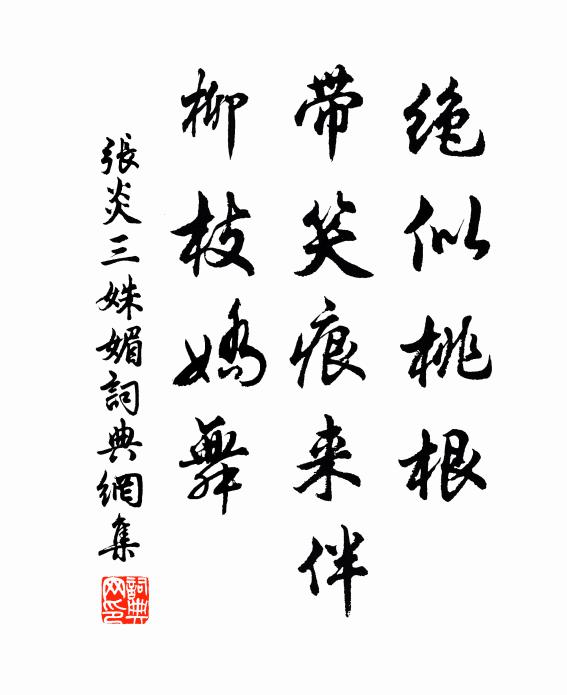 绝似桃根
带笑痕来伴
柳枝娇舞
張炎三姝媚詞典網集
詞典网印